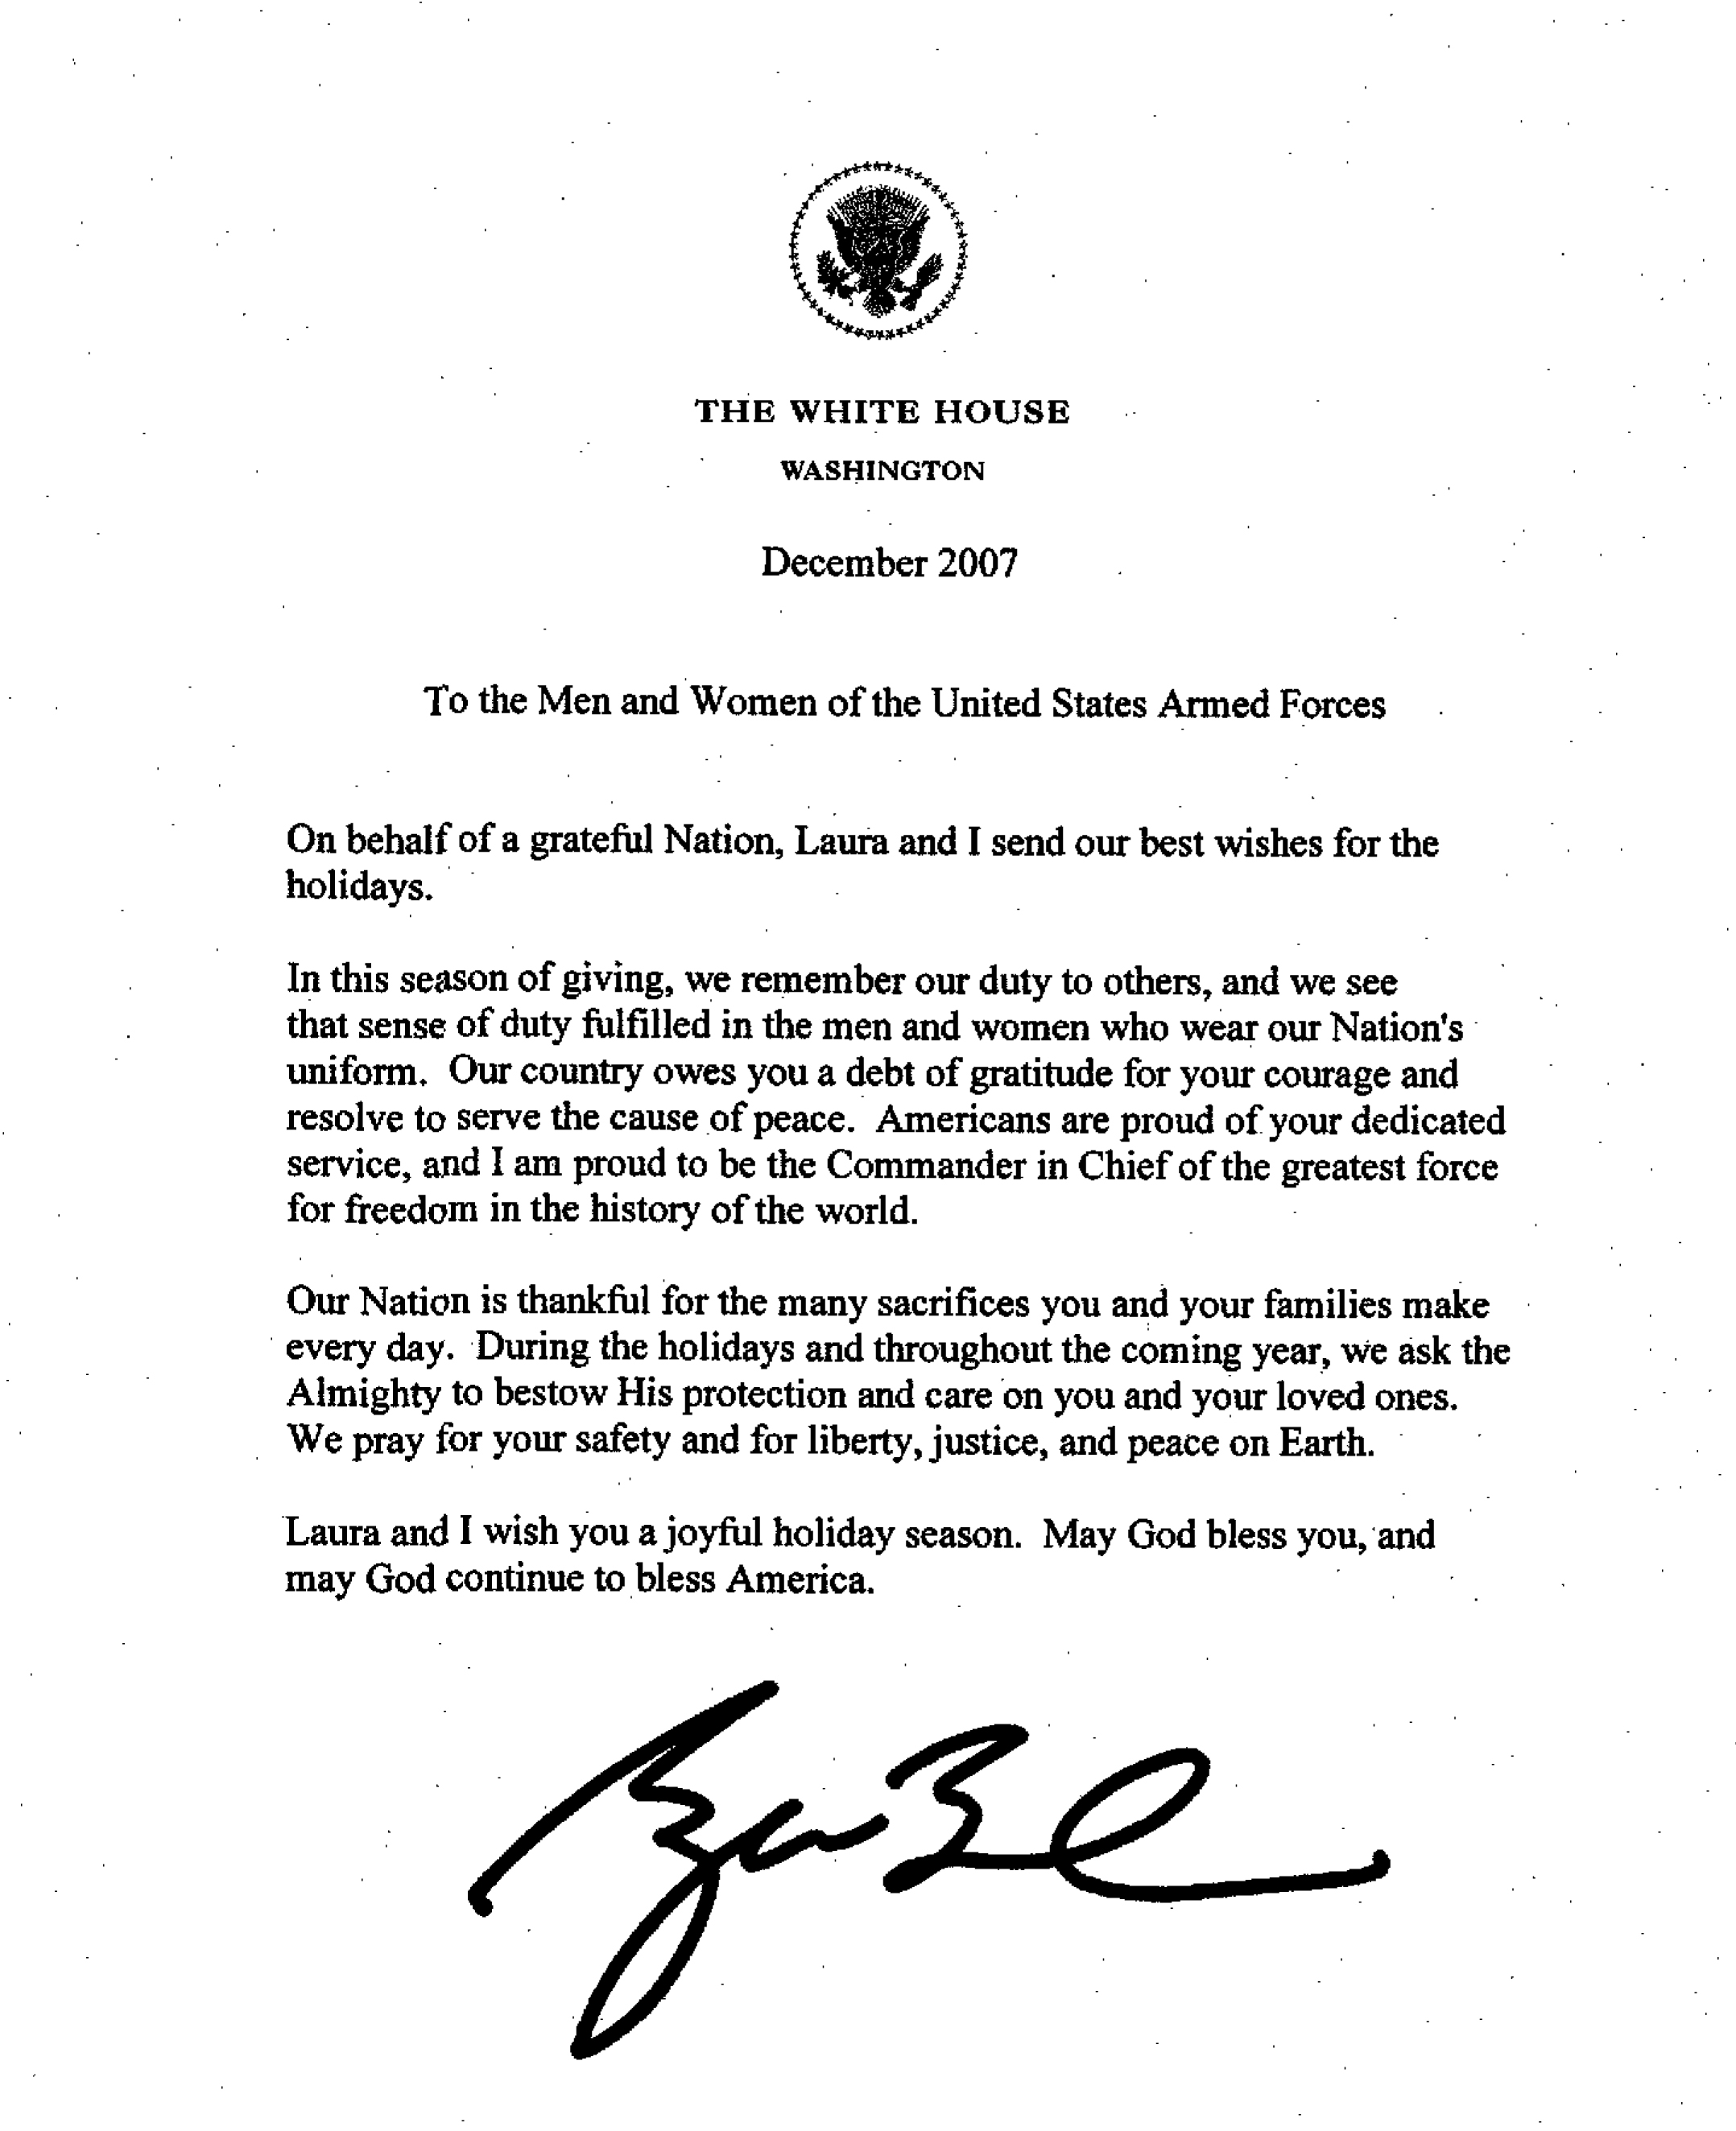 THE WHITE HOUSE
WASHINGTON
December 2007
To the Men and Women of the United States Armed Forces
On behalf of a grateful Nation, Laura and I send our best wishes for the
holidays.
In this season of giving, we remember our duty to others, and we see
that sense of duty fulfilled in the men and women who wear our Nation's
uniform. Our country owes you a debt of gratitude for your courage and
resolve to serve the cause of peace. Americans are proud of your dedicated
service, and I am proud to be the Commander in Chief of the greatest force
for freedom in the history of the world.
Our Nation is thankful for the many sacrifices you and your families make
every day. During the holidays and throughout the coming year, we ask the
Almighty to bestow His protection and care on you and your loved ones.
We pray for your safety and for liberty, justice, and peace on Earth.
Laura and I wish you a joyful holiday season. May God bless you, and
may God continue to bless America.